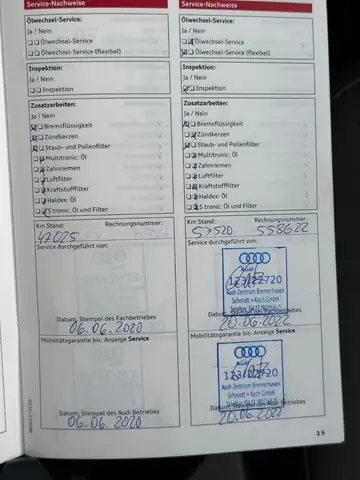 Service-Nachweise
Ölwechsel-Service:
Ja / Nein
Ölwechsel-Service
Ölwechsel-Service (flexibel)
Inspektion:
Ja / Nein
Inspektion
Zusatzarbeiten:
Ja / Nein
Bremsflüssigkeit
Zündkerzen
Staub- und Pollenfilter
Multitronic: Öl
Zahnriemen
Luftfilter
Kraftstofffilter
Haldex: Öl
S tronic: Öl und Filter
Km Stand: Rechnungsnummer:
47025
Service durchgeführt von:
Datum, Stempel des Fachbetriebes
06.06.2020
Mobilitätsgarantie bis: Anzeige Service
Datum, Stempel des Audi Betriebes
06.06.2020
Service-Nachweise
Ölwechsel-Service:
Ja / Nein
Ölwechsel-Service
Ölwechsel-Service (flexibel)
Inspektion:
Ja / Nein
Inspektion
Zusatzarbeiten:
Ja / Nein
Bremsflüssigkeit
Zündkerzen
Staub- und Pollenfilter
Multitronic: Öl
Zahnriemen
Luftfilter
Kraftstofffilter
Haldex: Öl
S tronic: Öl und Filter
Km Stand: Rechnungsnummer:
57520 558622
Service durchgeführt von:
Audi Zentrum Bremerhaven
Schmidt + Koch GmbH
20.06.2022
Mobilitätsgarantie bis: Anzeige Service
Audi
123/22720
Audi Zentrum Bremerhaven
Schmidt + Koch GmbH
Datum, Stempel des Audi Betriebes
20.06.2022
15